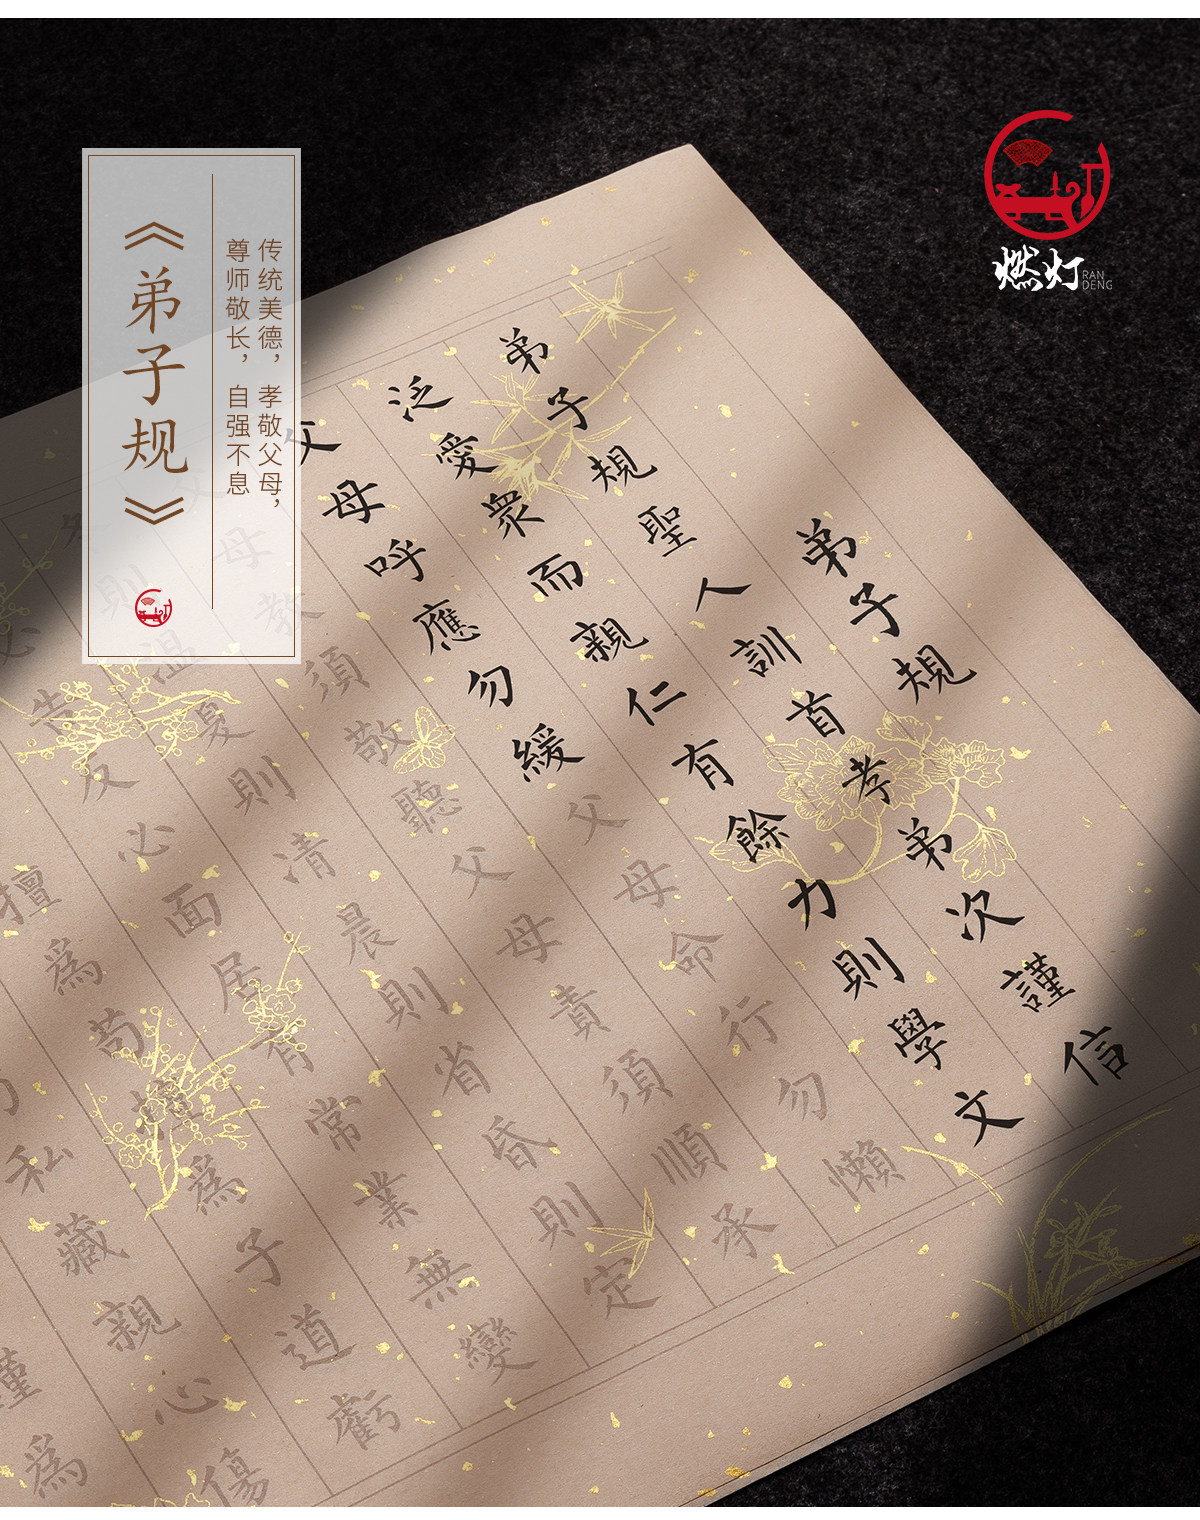 《弟子规》
传统美德，孝敬父母，
尊师敬长，自强不息
燃灯
RAN
DENG
弟子規
弟子規聖人訓首孝弟次謹信
泛愛眾而親仁有餘力則學文
父母呼應勿緩父母命行勿懶
父母教須敬聽父母責須順承
冬則溫夏則清晨則省昏則定
必告反必面居有常業無變
擅爲苟擅爲子道虧
勿私藏親心傷
謹爲